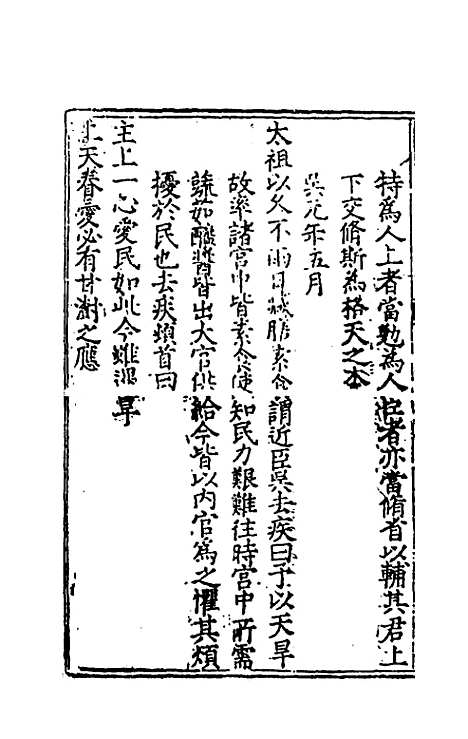 特為人上者當勉為人臣者亦當脩省以輔其君上
下交脩斯為格天之本
吳元年五月
太祖以久不雨日減膳素食謂近臣吳去疾曰予以天旱
故率諸宮中皆素食使知民力艱難往時宮中所需
蔬茹醯醬皆出大官供給今皆以內官為之懼其煩
擾於民也去疾頓首曰
主上一心愛民如此今雖溼旱
上天眷愛必有甘澍之應